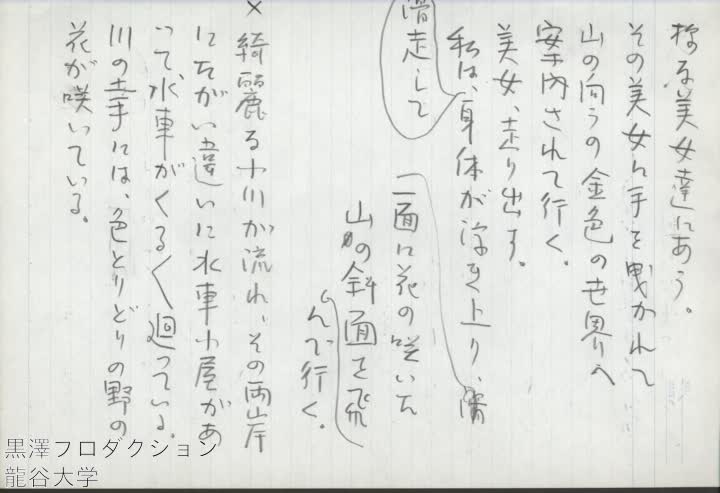 様な美女達にあう。
その美女に手を曳かれて
山の向うの金色の世界へ
案内されて行く。
美女、走り出す。
私は、身体が浮き上り、滑
滑走して
一面に花の咲いた
山の斜面を飛
んで行く。
× 綺麗な小川が流れ、その両岸
にたがい違いに水車小屋があ
って、水車がくるくる廻っている。
川の土手には、色とりどりの野の
花が咲いている。
黒澤プロダクション
龍谷大学